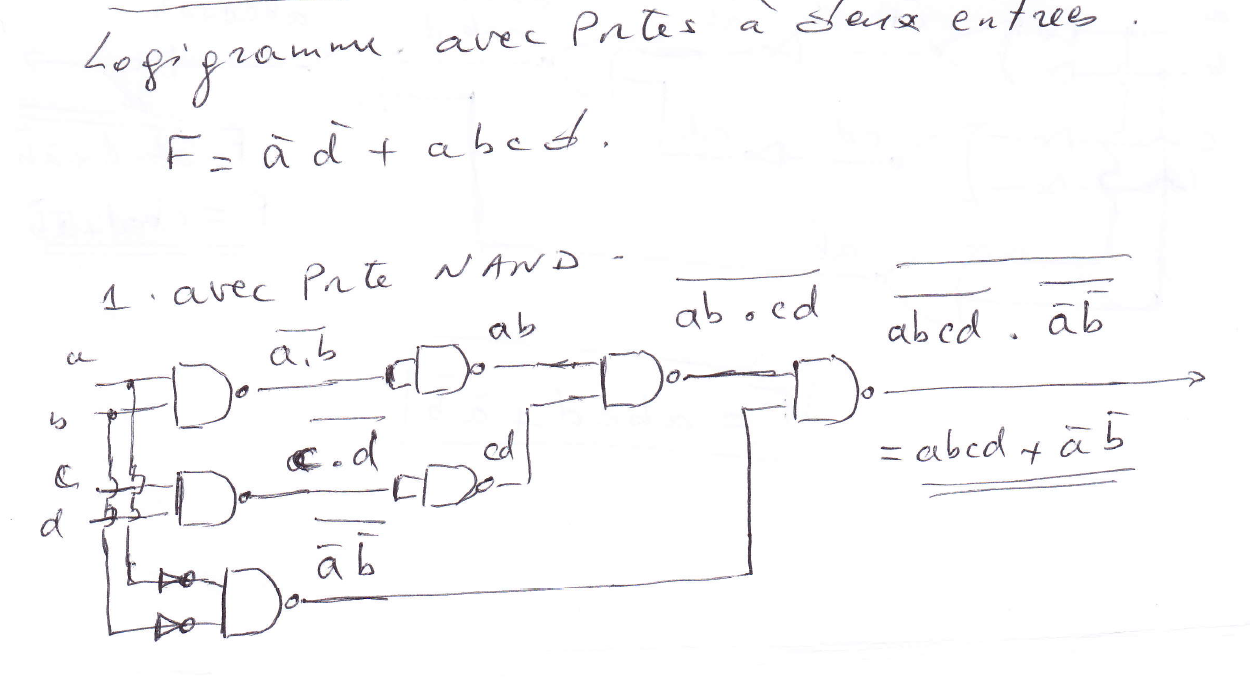 Logigramme avec Portes à deux entrees.
F = ā d̄ + abcd.
1. avec Porte NAND -
a
b
c
d
a̅.̅b̅
ab
a̅b̅ ̅.̅ ̅c̅d̅
c̅.̅d̅
cd
ā b̄
abcd . ā b̄
= abcd + ā b̄